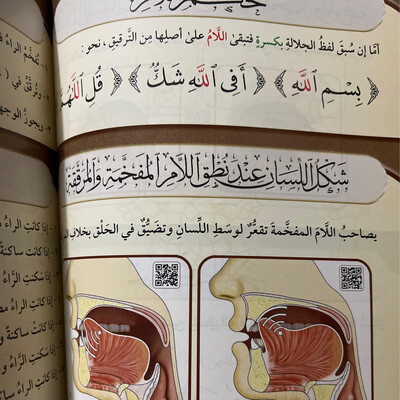 أمَّا إن سُبِقَ لفظُ الجلالةِ بكسرةٍ فتبقىٰ اللَّامُ علىٰ أصلِها مِن التَّرقيقِ ، نحو :
﴿ بِسْمِ ٱللَّهِ ﴾ ﴿ أَفِى ٱللَّهِ شَكٌّ ﴾ ﴿ قُلِ ٱللَّهُ
شَكْلُ اللِّسَانِ عِنْدَ نُطْقِ اللَّامِ المُفَخَّمَةِ وَالمُرَقَّقَةِ
يصاحبُ اللَّامَ المفخَّمةَ تقعُّرٌ لوسَطِ اللِّسانِ وتضيُّقٌ في الحَلْقِ بخلافِ
تُفخَّم الراء
- إذا كانتِ الراءُ
- إذا كانت ساكنةً
- إذا سَكنتِ الرَّاءُ
- إذا كانتِ الراءُ
- إذا كانت ساكنةً
- إذا سَكنتِ الرَّاءُ
- إذا كانتِ الراءُ